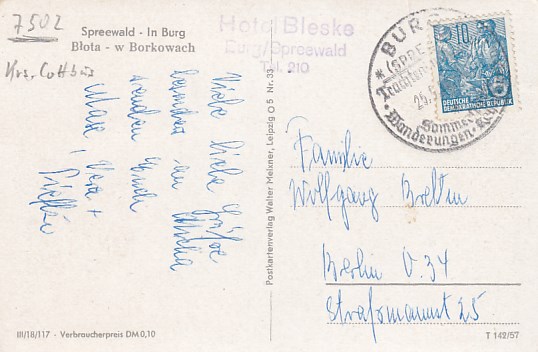 7502
Krs. Cottbus
Spreewald - In Burg
Błota - w Borkowach
Hotel Bleske
Burg/Spreewald
Tel. 210
BURG
(SPRE
Trachten
Sommer
Wanderungen
10
DEUTSCHE
DEMOKRATISCHE REPUBLIK
Viele liebe Grüße
senden Euch
Maxe, Vera +
Postkartenverlag Walter Meixner, Leipzig O 5 Nr. 33
Familie
Wolfgang
Berlin O. 34
Straßmannst 25
III/18/117 - Verbraucherpreis DM 0,10
T 142/57